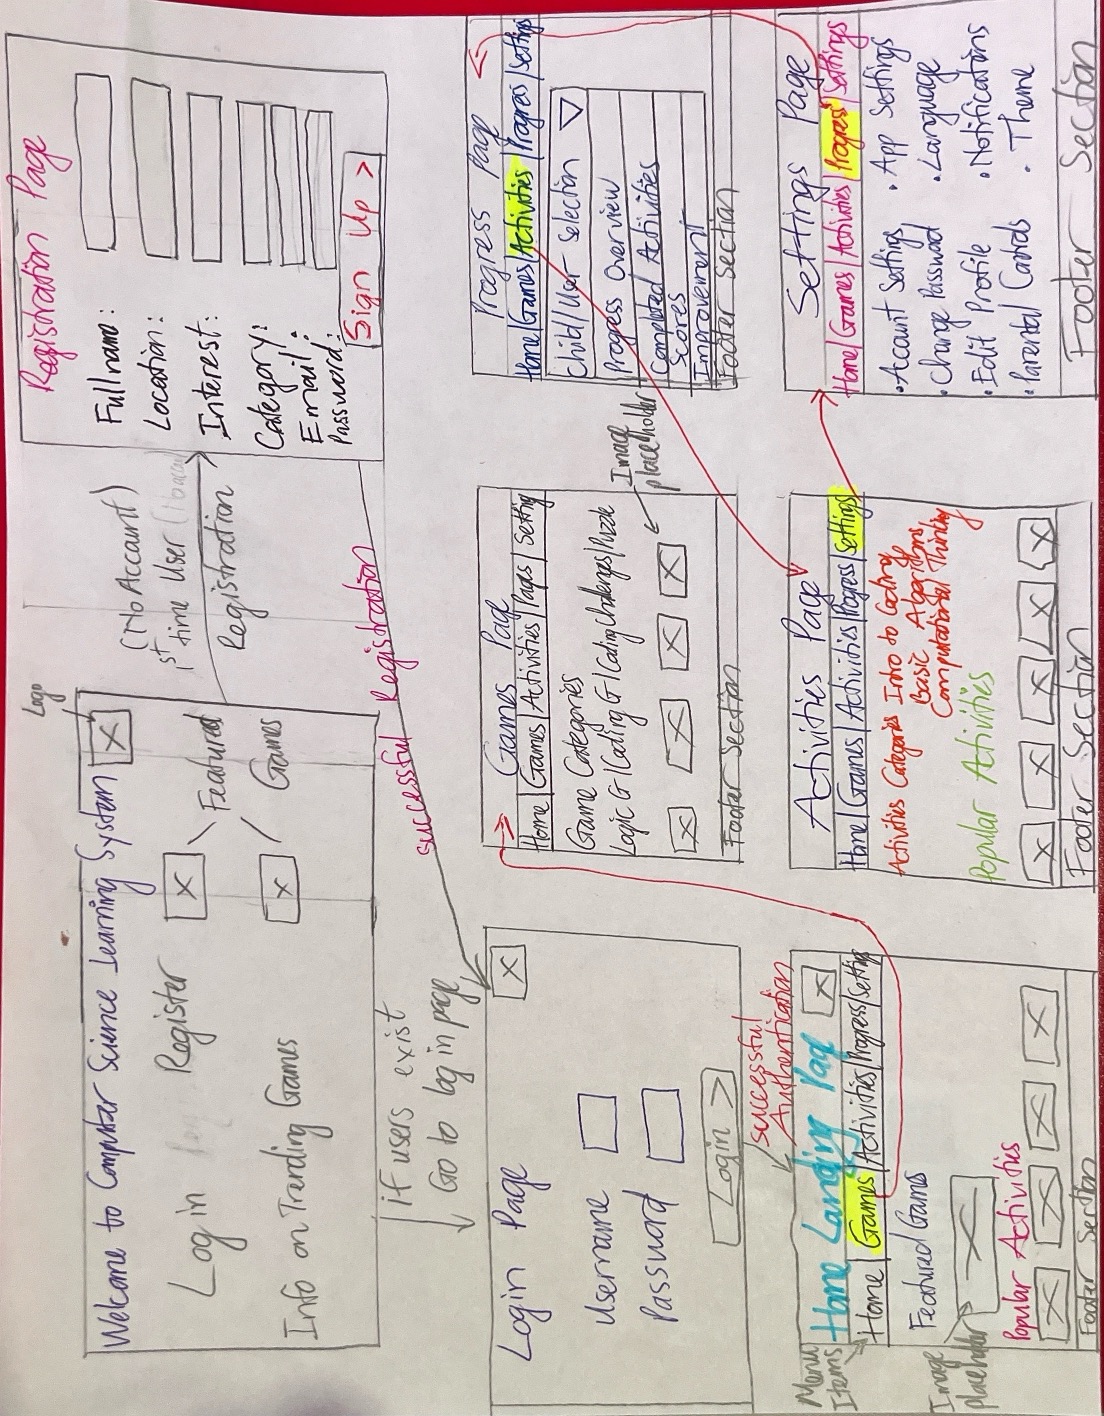 Logo
Welcome to Computer Science Learning System
Log in Register
Featured
Games
Info on Trending Games
(No Account)
1st time User
Registration
Registration Page
Fullname:
Location:
Interest:
Category:
Email:
Password:
Sign Up >
if users exist
Go to log in page
successful Registration
Login Page
Username
Password
Login >
successful
Authentication
Games Page
Home | Games | Activities | Pages | Setting
Game Categories
Logic G | Coding G | Coding Challenges | Puzzle
Image
placeholder
Footer Section
Progress Page
Home | Games | Activities | Progress | Settings
Child/User Selection
Progress Overview
Completed Activities
Scores
Improvement
Footer Section
Menu
Items
Home Landing Page
Home | Games | Activities | Progress | Setting
Featured Games
Image
placeholder
Popular Activities
Footer Section
Activities Page
Home | Games | Activities | Progress | Settings
Activities Categories Intro to Coding,
Basic Algorithms,
Computational Thinking
Popular Activities
Footer Section
Settings Page
Home | Games | Activities | Progress | Settings
• Account Settings • App Settings
• Change Password • Language
• Edit Profile • Notifications
• Parental Controls • Theme
Footer Section